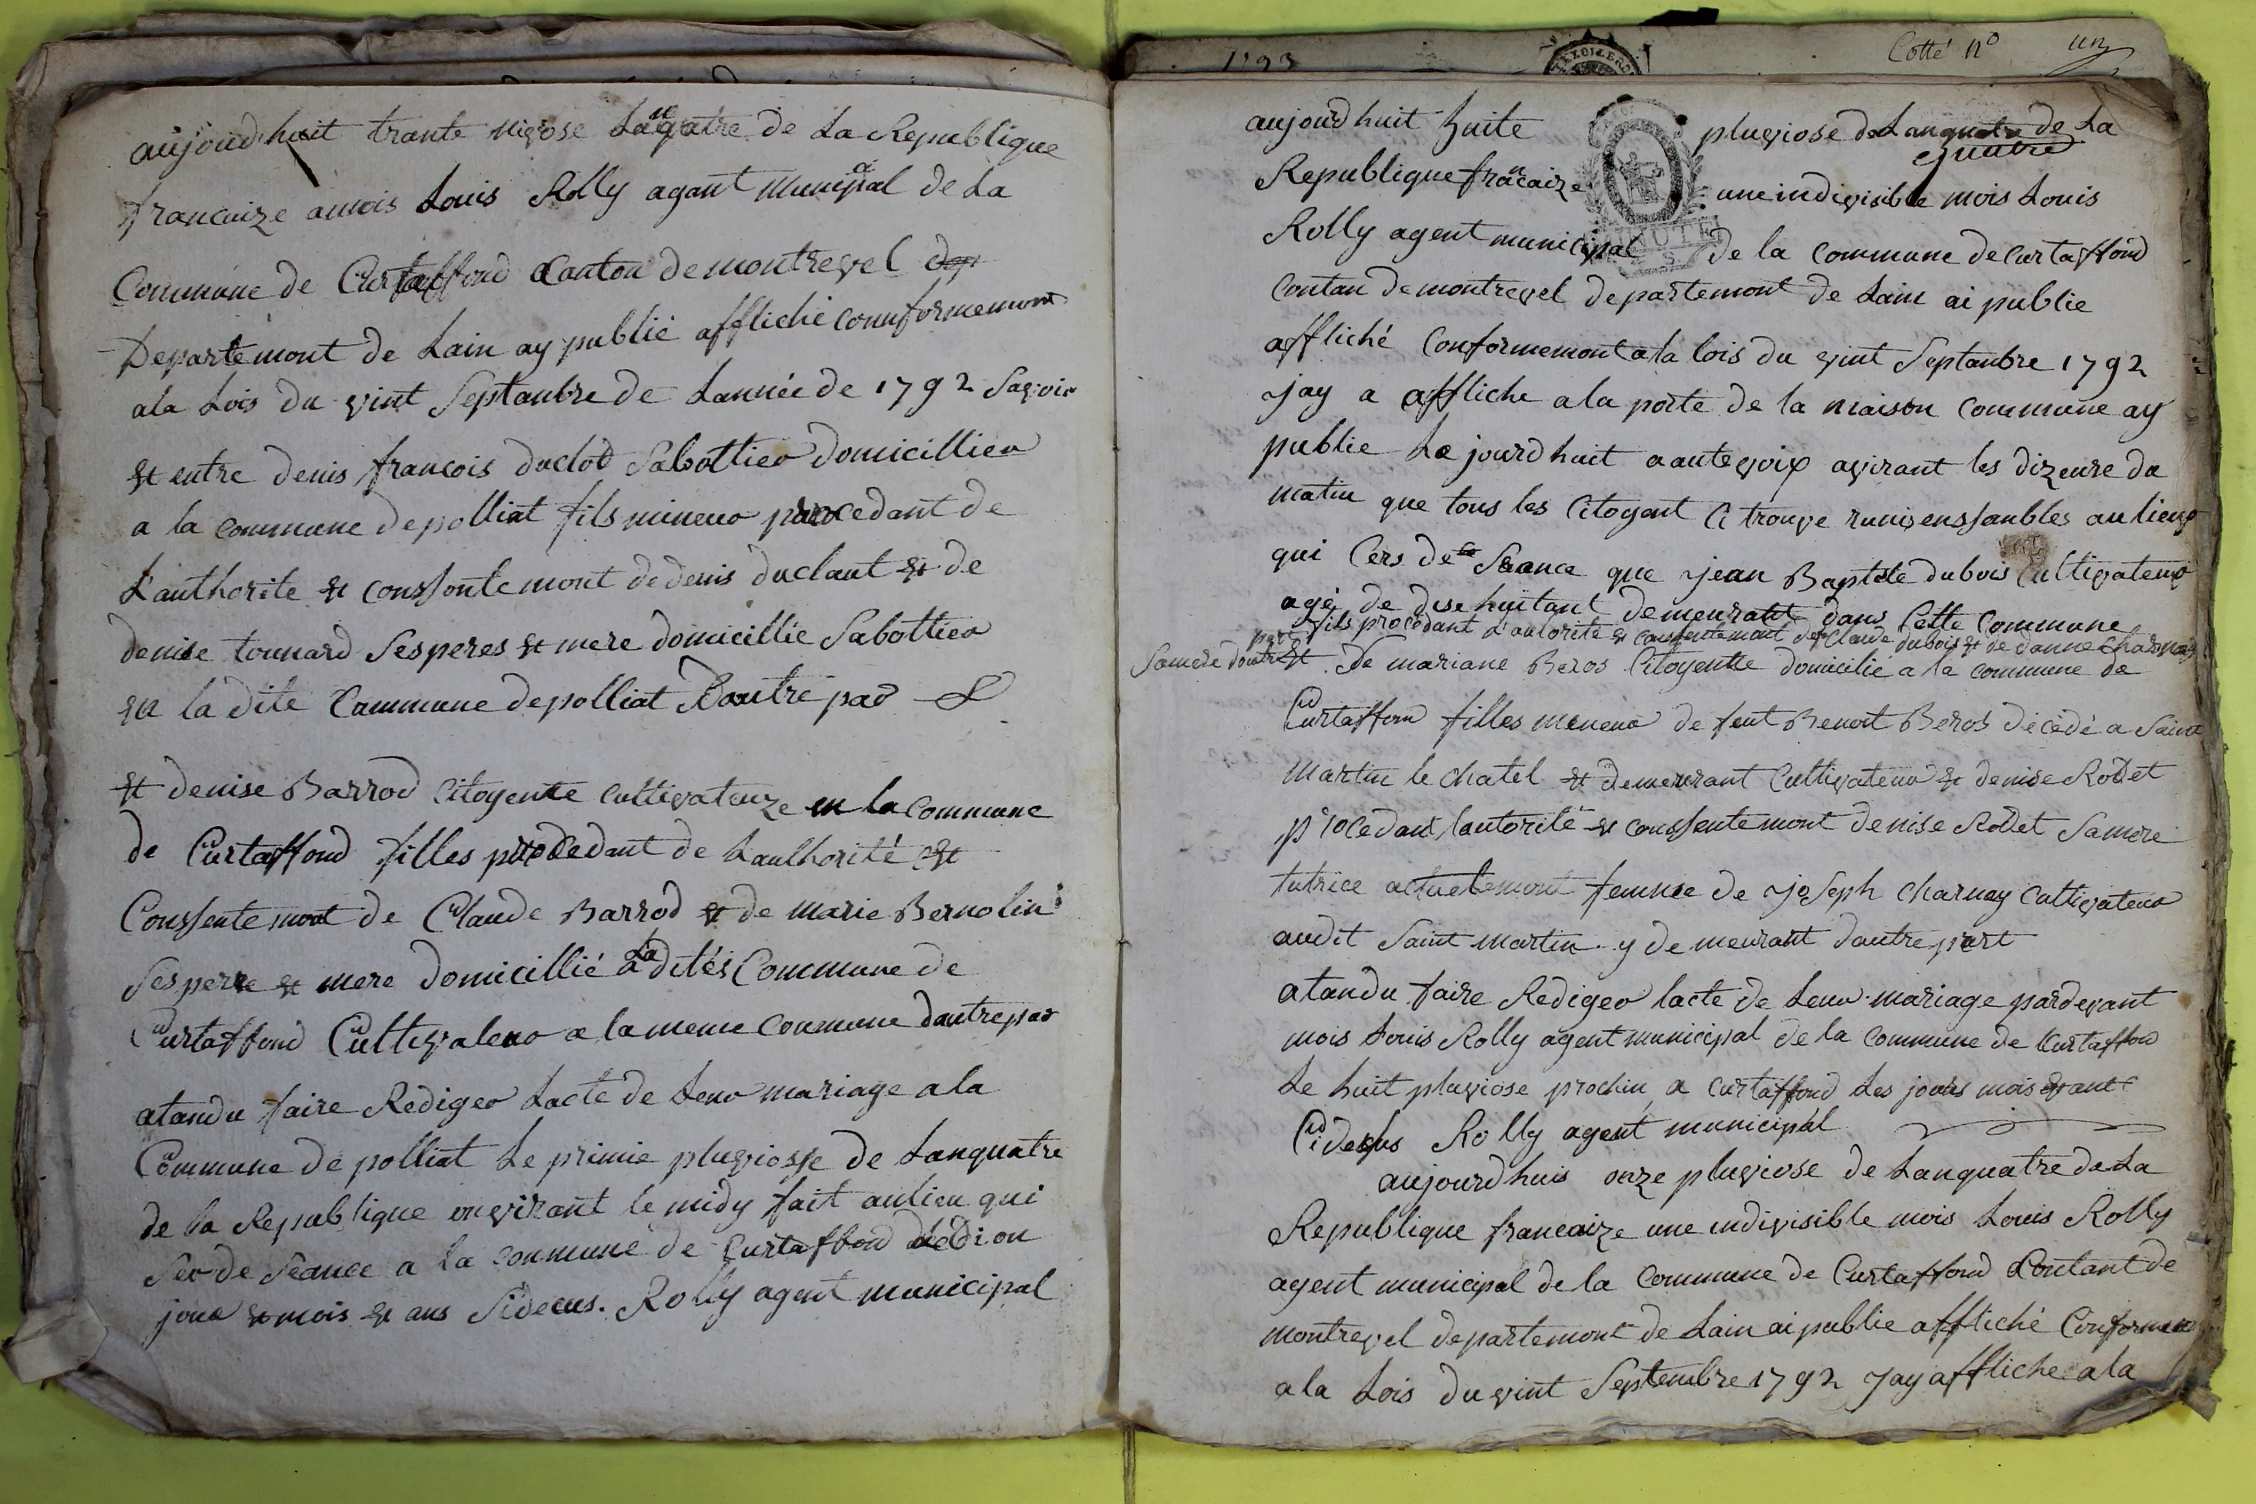 aujoud huit trante nivose Lanquatre de La Republique
francaize amois Louis Rolly agant Municipal de La
Commune de Curtaffond Canton de montrevel dep
Departemont de Lain ay publié affliché connformemont
ala Lois du vint Septanbre de Lannée de 1792 Savoir
& entre denis francois duclot Sabottier domicillier
a la commune de polliat fils mineur procedant de
L'authorite & conssontemont de denis duclaut & de
denise tounard Sesperes & mere domicillie Sabottier
en la dite Commune depolliat Dautre par
& denise Barrod Citoyente cultivateuze en la Commune
de Curtaffond filles procedant de Lauthorité &
Conssentemont de Claude Barrod & de marie Bernolin
Sespere & mere domicillié a La dités Commune de
Curtaffond Cultivateur a la meme commune dautre par
atandu faire Rediger Lacte de Leur mariage a la
Commune de polliat Le primie pluviosse de Lanquatre
de La Republique environt le midy fait aulieu qui
Ser de Séance a la commune de Curtaffond dédion
jour & mois & ans Sidecus. Rolly agent municipal
1793
Cotté n° un
aujourdhuit huite pluviose de Lanquatre de La
quatre
Republique francaize une indivisible mois Louis
Rolly agent municipal de la commune de curtaffond
Contan de montrevel departemont de Lain ai publie
affliché conformemont a la lois du vint Septanbre 1792
jay a affliche a la porte de la maison commune ay
publie Le jourdhuit aautevoix avirant les dizeure du
matin que tous les Citoyent Citrouve runis enssanbles au lieux
qui Cers de Seance que jean Baptiste dubois Cultivateur
agé de dise huitant demeurant dans Cette Commune
part fils procedant L'autorite & conssentemont de Claude dubois & de danne Charnay
Samere dautre & De mariane Beros Citoyentte domicilié a la commune de
Curtaffon filles mineur de feut Benoit Beros décédé a Saint
Martin le chatel & demeurant Cultivateur & denise Rodet
procedant lautorité & conssentemont denise Rodet Samere
tutrice actuelemont femme de joseph charnay Cultivateur
audit Saint martin y demeurant dautre part
atandu faire Rediger lacte de Leur mariage pardevant
mois Louis Rolly agent municipal de la commune de Curtaffon
Le huit pluviose prochin a curtaffond Les jours mois & ant
Cidesus Rolly agent municipal
aujourdhuis onze pluviose de Lanquatre de La
Republique francaize une indivisible mois Louis Rolly
agent municipal de la commune de Curtaffond Contant de
montrevel departemont de Lain ai publie affliché Conformem
ala Lois du vint Septembre 1792 jay affliche a la